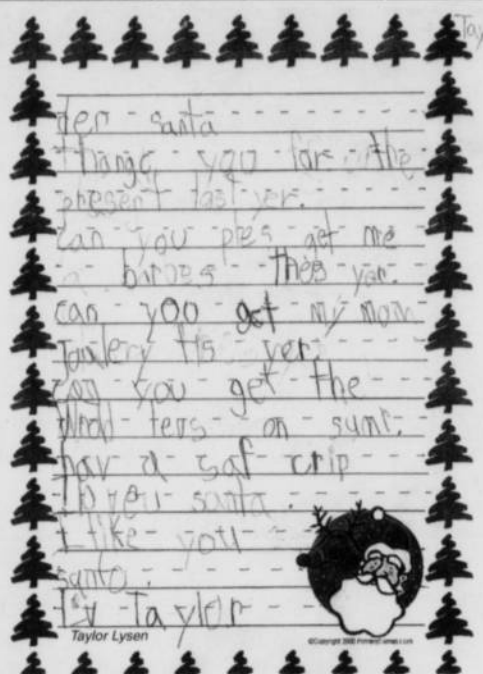 Tay
der santa
thangc you for the
present last yer.
can you ples get me
a barbes thes yer.
can you get my mom
joulery ths yer.
can you get the
on sumr.
hav a saf trip
to you santa.
I like you
santa.
Taylor
Taylor Lysen